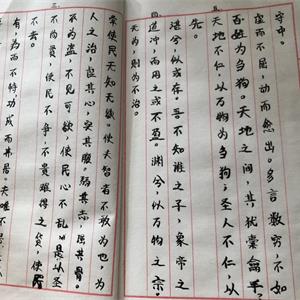 有，为而不恃，功成而弗居。夫唯不
不去。
三
不尚贤，使民不争，不贵难得之货，使民
不为盗，不见可欲，使民心不乱。是以圣
人之治，虚其心，实其腹，弱其志，强其骨。
常使民无知无欲。使夫智者不敢为也，为
无为，则为不治。
四
道冲，而用之或不盈。渊兮，似万物之宗。
湛兮，似或存。吾不知谁之子，象帝之
先。
五
天地不仁，以万物为刍狗。圣人不仁，以
百姓为刍狗。天地之间，其犹橐龠乎
虚而不屈，动而愈出。多言数穷，不如
守中。